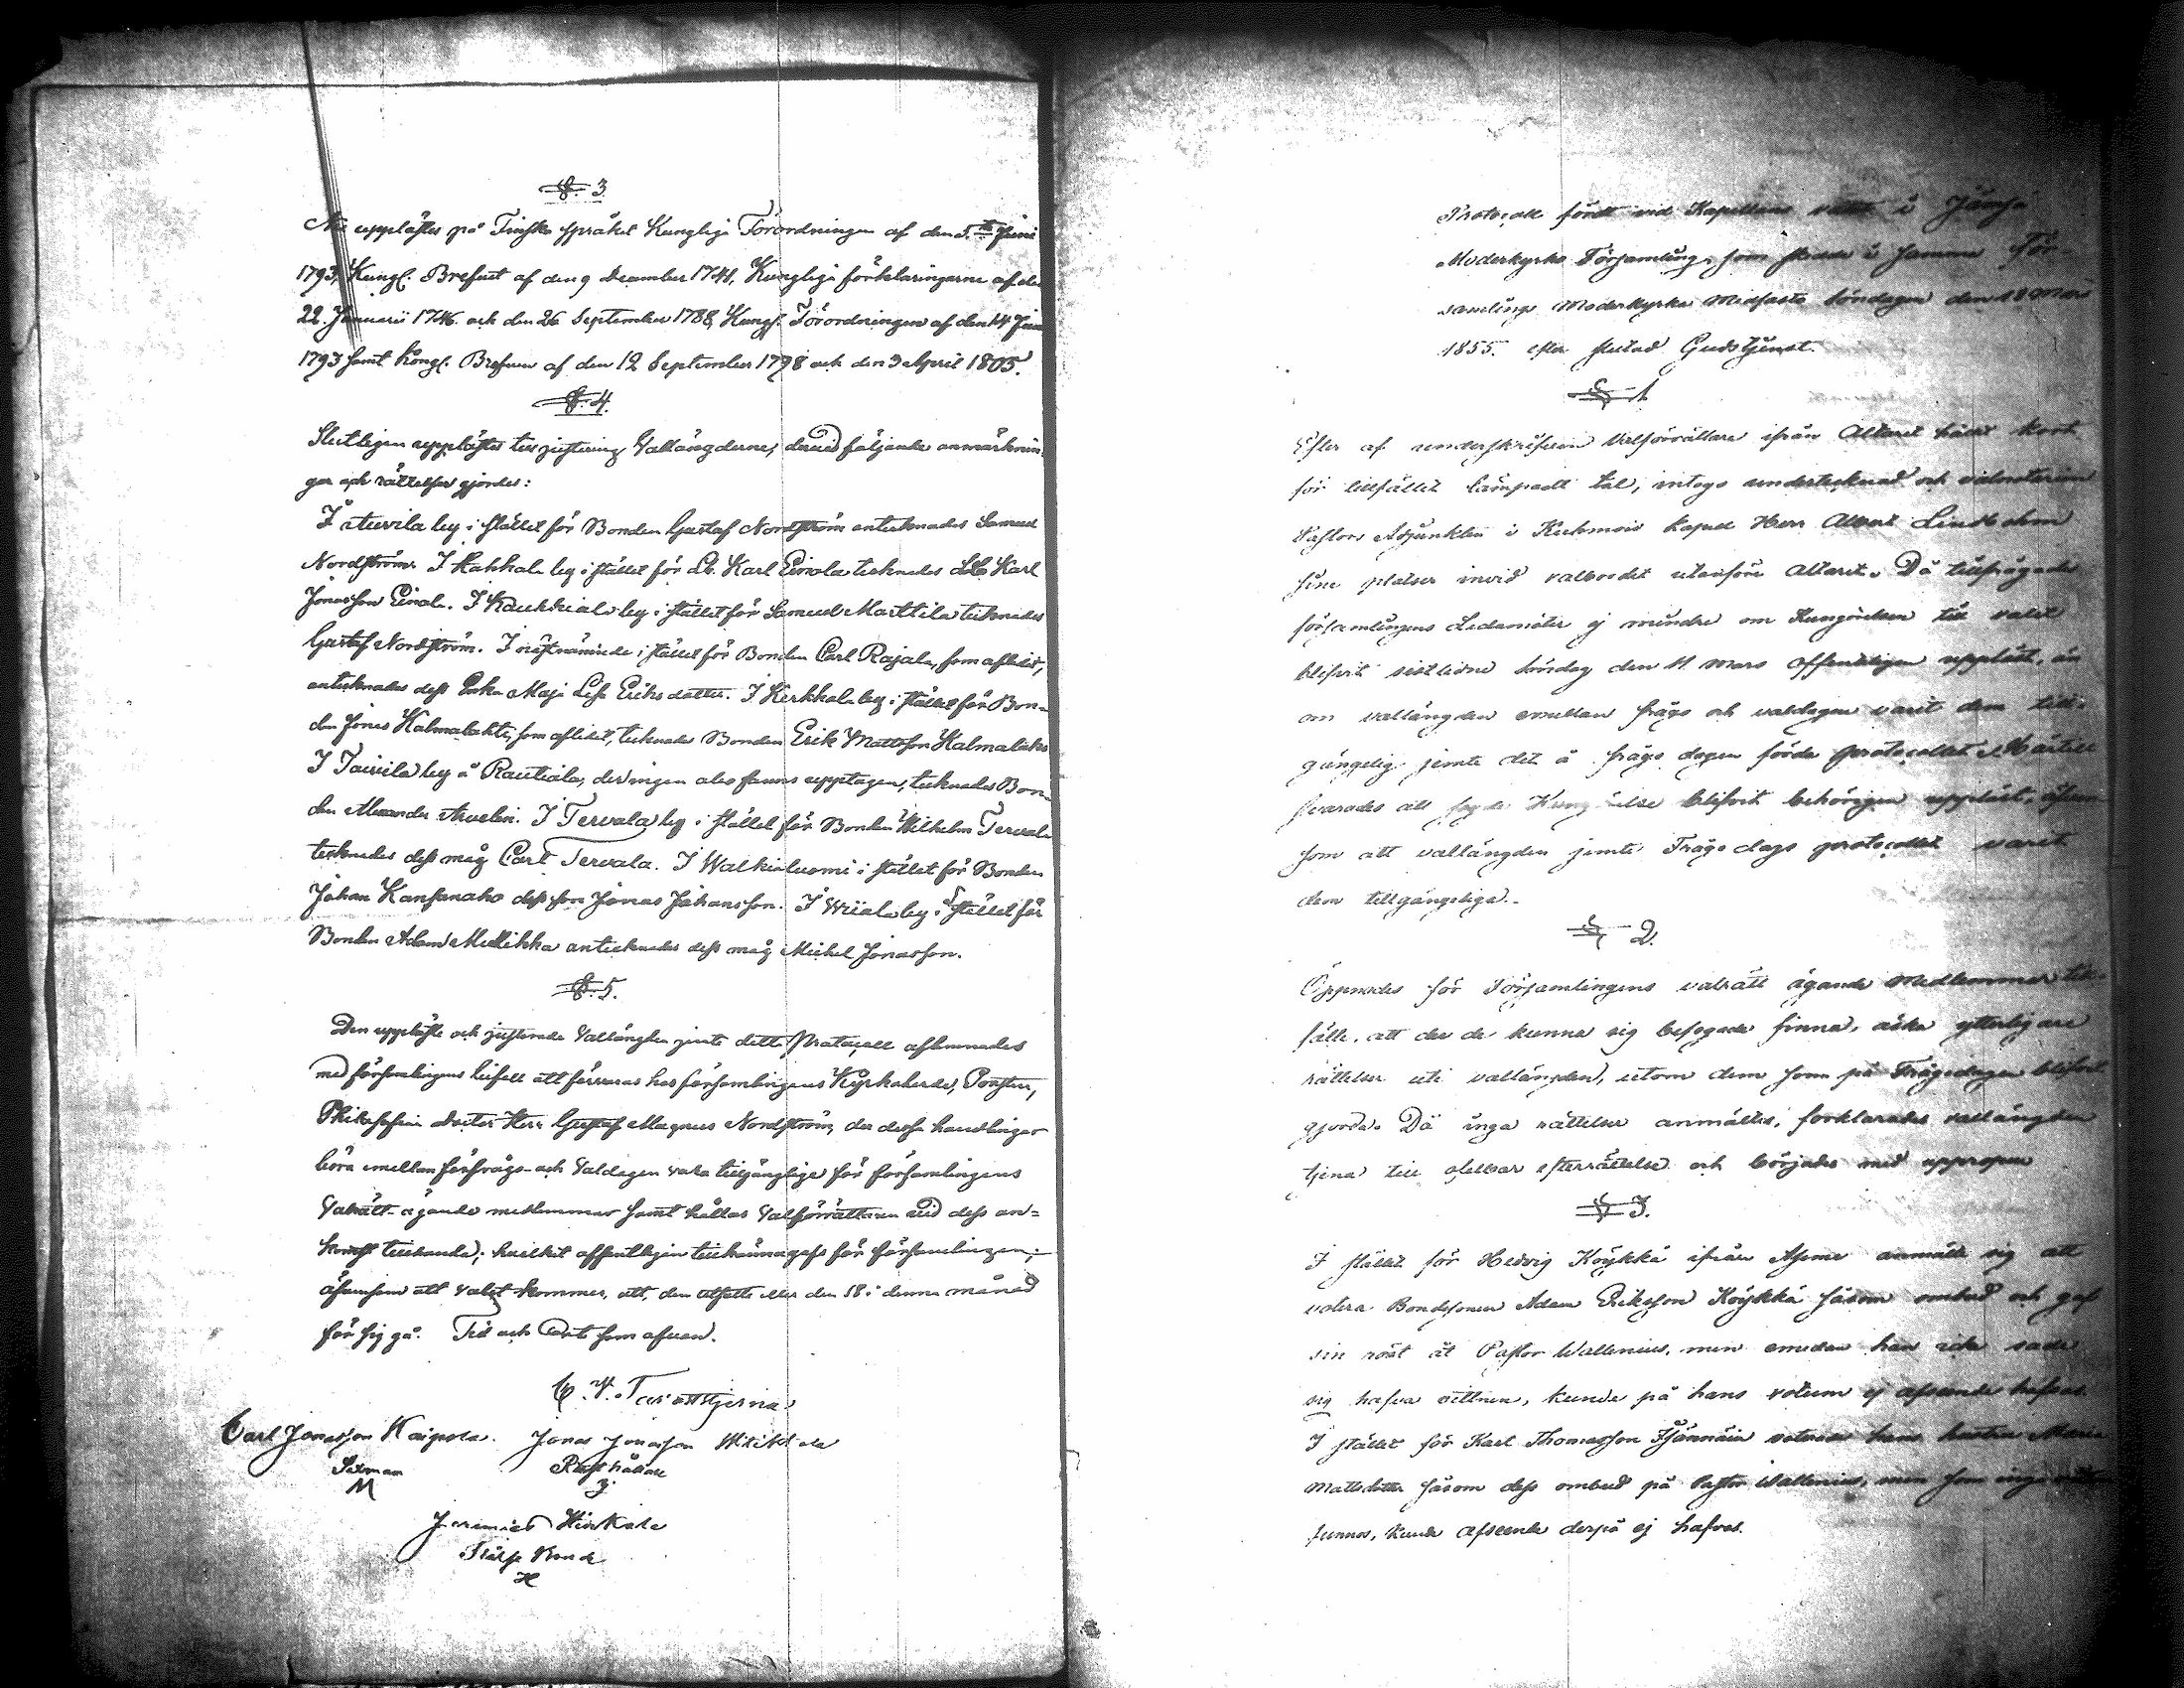 §. 3.
Nu upplästes på Finska språket Kungliga Förordningen af den 5.te Juni
1793, Kungl. Brefvet af den 9 December 1741, Kungliga förklaringarne af den
22. Januarii 1746. och den 26 September 1788, Kungl. Förordningen af den 14 Juni
1793 samt Kongl. Brefven af den 12 September 1798 och den 3 April 1805.
§. 4.
Slutligen upplästes till justering Vallängderne, dervid följande anmärknin-
gar och rättelser gjordes:
I Aturila by i stället för Bonden Gustaf Nordström antecknades Samuel
Nordström. I Kakkala by i stället för Lb. Karl Einola tecknades Karl
Jonasson Einola. I Kaukkiala by i stället för Samuel Marttila tecknades
Gustaf Nordström. I nästnämnde i stället för Bonden Carl Rajala, som aflidit,
antecknades dess Enka Maja Lisa Eriksdotter. I Kerkkola by i stället för Bon-
den Jonas Kalmalahti, som aflidit, tecknades Bonden Erik Mattsson Kalmalahti
I Tawila by å Rautiala, der ingen abo fanns upptagen, tecknades Bon-
den Alexander Arvelin. I Tervala by i stället för Bonden Wilhelm Tervala
tecknades dess måg Carl Tervala. I Walkialuomi i stället för Bonden
Johan Kansanaho dess son Jonas Johansson. I Wiiala by i stället för
Bonden Adam Mellikka antecknades dess måg Michel Jonasson.
§. 5.
Den uppläste och justerade Vallängden jemte detta Protocoll aflemnades
med församlingens bifall att förvaras hos församlingens Kyrkoherde, Prosten,
Philosophiæ Doctor Herr Gustaf Magnus Nordström, der dessa handlingar
böra emellan förfrågs- och Valdagen vara tillgänglige för församlingens
Valrätt-ägande medlemmar samt hållas Valförrättaren vid dess an-
komst tillhanda; hvilket offentligen tillkännagafs för församlingen;
äfvensom att valet kommer, att, den utsatte eller den 18 i denna månad
för sig gå. Tid och Ort som ofvan.
Carl Jonasson Kaipola. Jonas Jonasson
Sexman Rusthållare
M
Jeremias Hinkala
Skatte Bonde
H
Protocoll fördt vid Kapellans valet i Jämsä
Moderkyrko Församling, som skedde i samma För-
samlings Moderkyrka Midfasto Söndagen den 18 Mars
1855. efter slutad Gudstjenst.
§ 1
Efter af underskrifven Valförrättare ifrån Altaret hållit kort
för tillfället lämpadt tal, intogo undertecknad och valnotarien
Pastors Adjunkten i Kuhmois kapell Herr Albert Lindholm
sine platser invid valbordet utanföre Altaret. Då tillfrågade
församlingens Ledamöter ej mindre om Kungörelsen till valet
blifvit sistledne Söndag den 11 Mars offentligen uppläst, än
om vallängden emellan frågo och valdagen varit dem till-
gänglig jemte det å frågo dagen förda protocollet. Härtill
svarades att sagde Kungörelse blifvit behörigen uppläst, äfven
som att vallängden jemte Frågodags protocollet varit
dem tillgängeliga.
§ 2.
Öppnades för Församlingens valrätt ägande medlemmar till-
fälle, att der de kunna sig befogade finna, äska ytterligare
rättelser uti vallängden, utom dem som på Frågodagen blifvit
gjorda. Då inga rättelser anmältes, förklarades vallängden
tjena till ofelbar efterrättelse och börjades med uppropen
§ 3.
I stället för Hedvig Köykkä ifrån anmälte sig att
votera Bondesonen Adam Eriksson Köykkä såsom ombud och gaf
sin röst åt Pastor Wallenius, men emedan han icke sade
sig hafva vittnen, kunde på hans votum ej afseende hafvas.
I stället för Karl Thomasson voterade hans hustru Maria
Mattsdotter såsom dess ombud på Pastor Wallenius, men som inga
funnos, kunde afseende derpå ej hafvas.